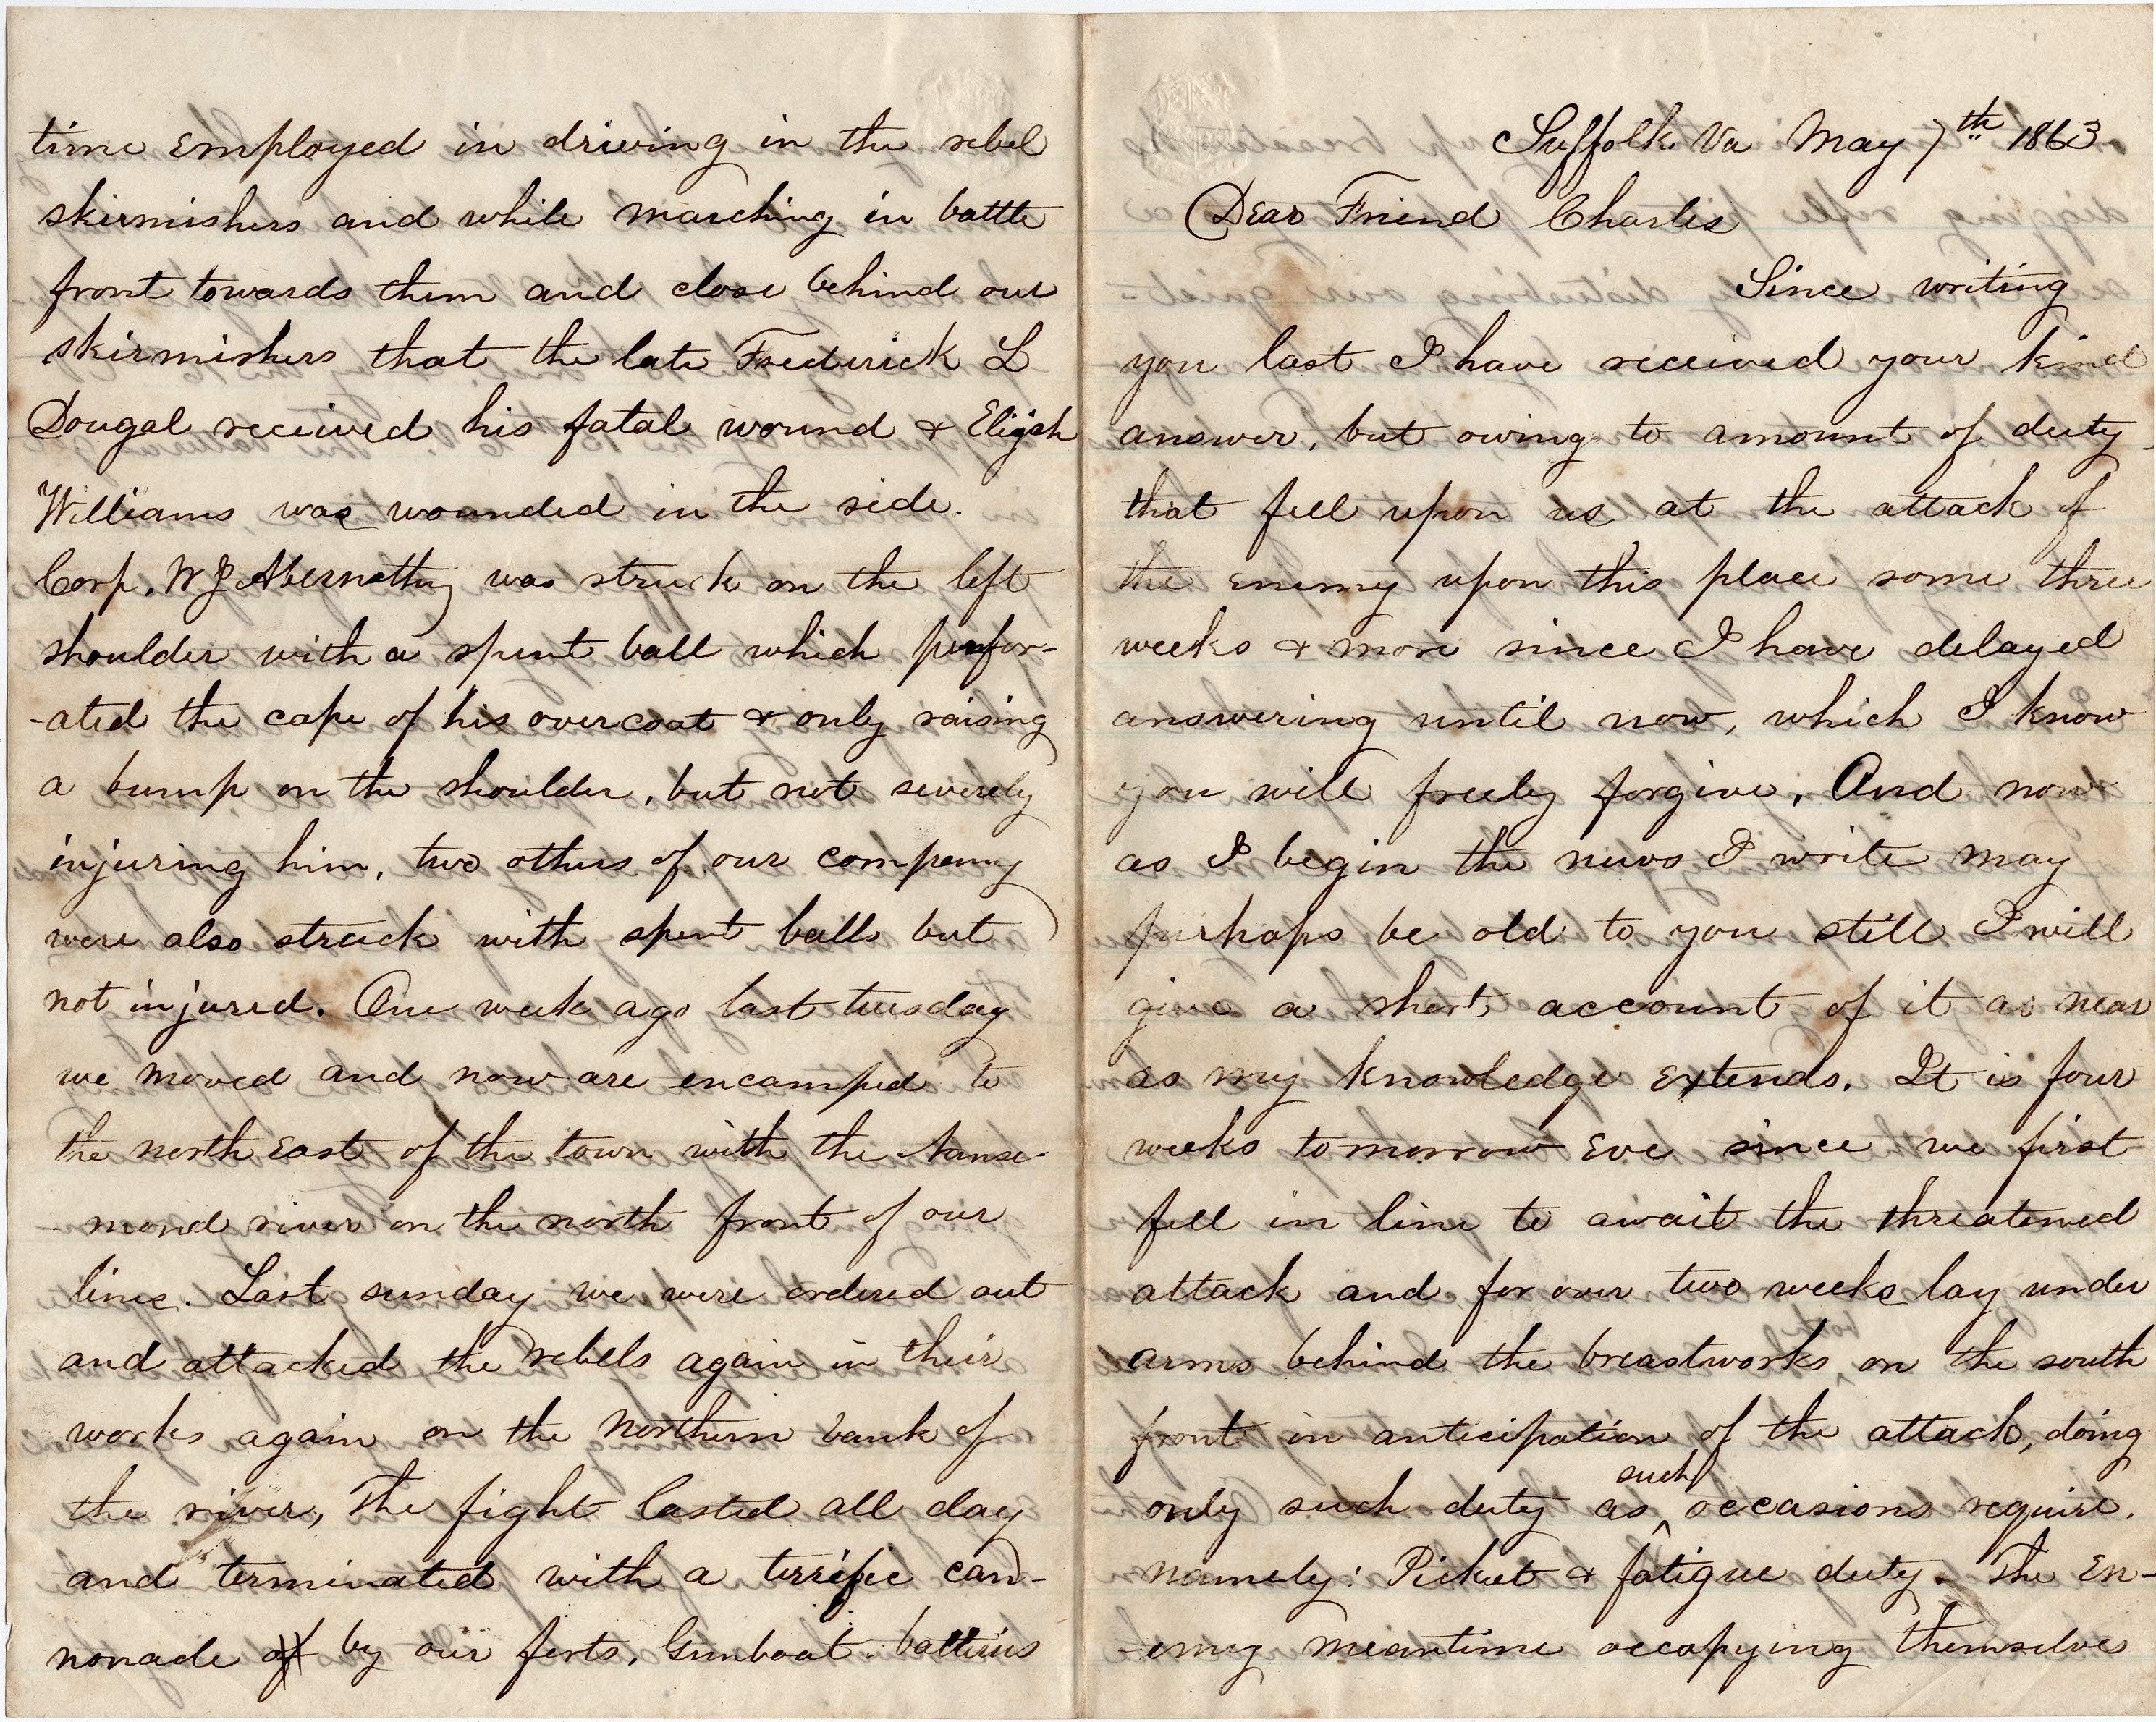 Suffolk Va May 7th 1863
Dear Friend Charles
Since writing
you last I have received your kind
answer, but owing to amount of duty
that fell upon us at the attack of
the enemy upon this place some three
weeks & more since I have delayed
answering until now, which I know
you will freely forgive. And now
as I begin the news I write may
perhaps be old to you still I will
give a short account of it as near
as my knowledge extends. It is four
weeks tomorrow eve since we first
fell in line to await the threatened
attack and for over two weeks lay under
arms behind the breastworks, on the south
front in anticipation of the attack, doing
only such duty as such occasions require.
namely: Picket & fatigue duty. The en-
-emy meantime occupying themselve
time employed in driving in the rebel
skirmishers and while marching in battle
front towards them and close behind our
skirmishers that the late Frederick L
Dougal received his fatal wound & Elijah
Williams was wounded in the side.
Corp. W J Abernathy was struck on the left
shoulder with a spent ball which perfor-
-ated the cape of his overcoat & only raising
a bump on the shoulder, but not severely
injuring him, two others of our company
were also struck with spent balls but
not injured. One week ago last tuesday
we moved and now are encamped to
the north east of the town with the Nanse-
-mond river on the north front of our
lines. Last sunday we were ordered out
and attacked the rebels again in their
works again on the Northern bank of
the river, The fight lasted all day
and terminated with a terrific can-
nonade of by our forts, Gunboat. batteries